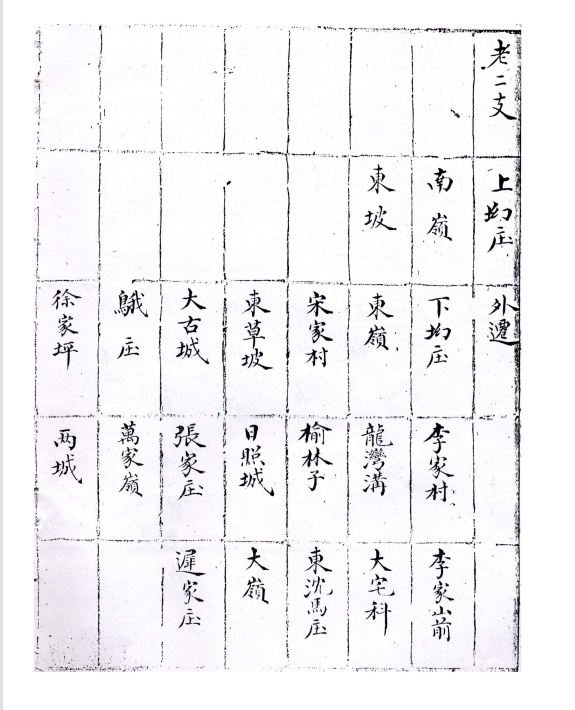 老二支
上垇庄
外遷
南嶺
下垇庄
李家村
李家山前
東坡
東嶺
龍灣溝
大宅科
宋家村
榆林子
東沈馬庄
東草坡
日照城
大嶺
大古城
張家庄
遲家庄
鵝庄
萬家嶺
徐家坪
两城